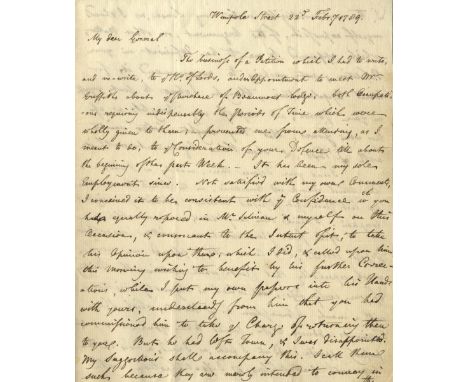 Wimpole Street 22d. Feby. 1789.
My dear General
The business of a Petition which I had to write,
and re-write, to ye H: of Lords, and an Appointment to meet Mr.
Griffiths about ye Purchase of Beaumont Lodge, both Occupati-
ons requiring indispensably the Periods of Time which were
wholly given to them, prevented me from attending, as I
meant to do, to ye Consideration of your Defence till about
the beginning of the past Week. — It has been my sole
Employment since. Not satisfied with my own Comments,
I conceived it to be consistent with ye Confidence wh. you
had equally reposed in Mr. Sulivan & myself on this
Occasion, & consonant to the Intent of it, to take
his Opinion upon them; which I did, & called upon him
this Morning wishing to benefit by his further Correc-
tions, while I put my own papers into his Hands
with yours, understanding from him that you had
commissioned him to take ye Charge of returning them
to you. But he had left Town, & I was disappointed.
My Suggestions shall accompany this. I call them
such because they are merely intended to convey in